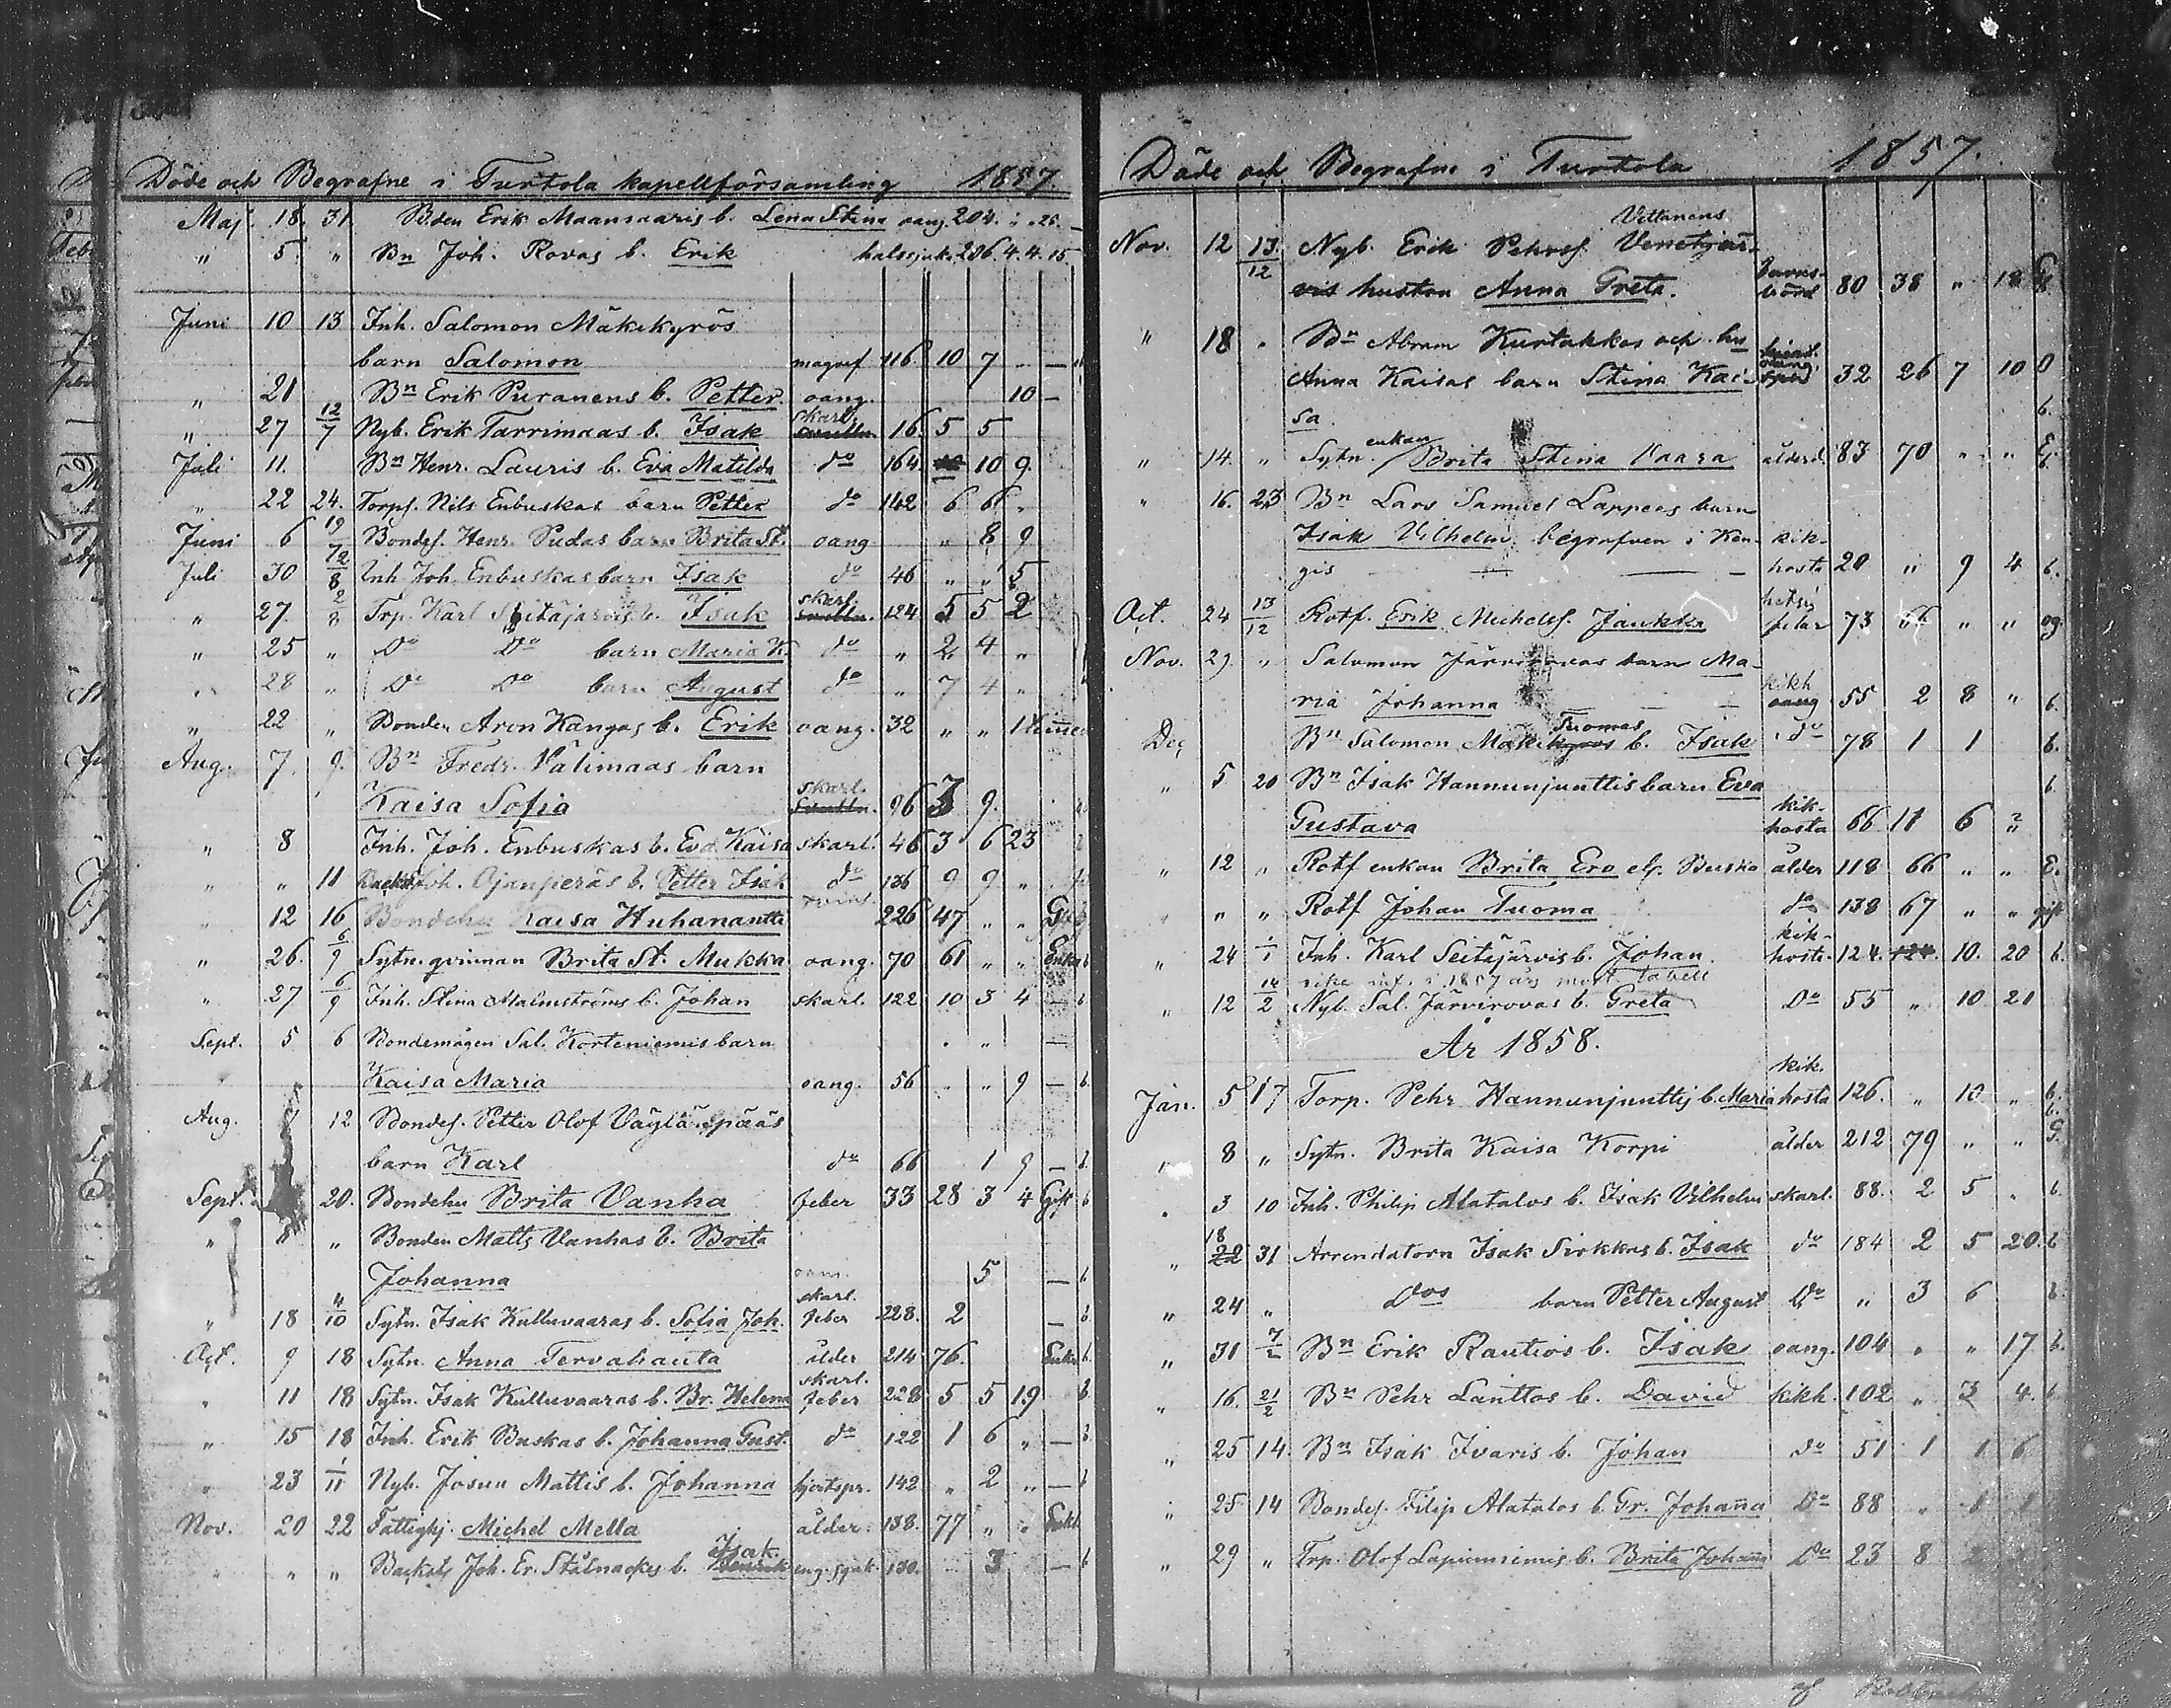 Döde och Begrafne i Turtola kapellförsamling 1857.
Maj. 18. 31. Bden Erik Maansaaris b. Lena Stina oang. 204. " " 25. —
" 5. " Bn Joh. Rovas b. Erik halssjuk. 236 4. 4. 15
Juni 10 13 Inh. Salomon Mäkikyrös
barn Salomon magref 116 10 7 —
" 21 Bn Erik Puranens b. Petter oang. 10 —
" 27 12/7 Nyb. Erik Tarrimaas b. Isak skarl. 16. 5 5
Juli 11. Bn Henr. Lauris b. Eva Matilda do 164 10 9.
" 22 24. Torps. Nils Enbuskas barn Petter do 142 6 6 "
Juni 6 19/7 Bondes. Henr. Pudas barn Brita St. oang " 8 9
Juli 30 2/8 Inh Joh. Enbuskas barn Isak do 46 " " 5
" 27. 2/8 Trp. Karl Seitäjärvis b. Isak skarl. 124 5 5 2
" 25 " Do Do barn Maria K. do " 2 4 "
" 28 " Do Do barn August do " 7 4 "
" 22 " Bonden Aron Kangas b. Erik oang. 32 " " 14
Aug. 7. 9. Bn Fredr. Välimaas barn
Kaisa Sofia skarl. 96 3 9.
" 8 Inh. Joh. Enbuskas b. Eva Kaisa skarl. 46 3 6 23
" " 11 Joh. Ojanperäs b. Petter Isak do 136 9 9 "
" 12 16 Bondehu Kaisa Huhanantti 226 47 " "
" 26. 6/9 Sytn. qvinnan Brita St. Mukka oang. 70 61 " " Enka b
" 27 6/9 Inh. Stina Malmströms b. Johan skarl. 122 10 3 4 — b
Sept. 5 6 Bondemågen Sal. Korteniemis barn
Kaisa Maria oang. 56 " " 9 — b.
Aug. 12 Bondes. Petter Olof Väyläspääs
barn Karl do 66 1 9 — b.
Sept. 20. Bondehu Brita Vanha feber 33 28 3 4 Gift b
" 8 " Bonden Matts Vanhas b. Brita
Johanna oang. 5 — b
" 18 4/10 Sytn. Isak Kulluvaaras b. Sofia Joh. skarl. feber 228. 2 — b.
Oct. 9 18 Sytn. Anna Tervahauta ålder 214 76. Enka b.
" 11 18 Sytn. Isak Kulluvaaras b. Br. Helena skarl. feber 228 5 5 19 b.
" 15 18 Inh. Erik Buskas b. Johanna Gust. do 122 1 6 " — b.
" 23 1/11 Nyb. Josua Mattis b. Johanna hjertspr. 142 " 2 " — b
Nov. 20 22 Fattighj. Michel Mella ålder. 138. 77 " " Enkl
" " " Backst. Joh. Er. Stålnackes b. Isak eng. sjuk. 130. 3 — b
Döde och Begrafne i Turtola 1857.
Nov. 12 13/12 Nyb. Erik Pehrss. Vittanens Venetjär-
vis hustru Anna Greta. barns-börd 80 38 " 18 G
" 18 " Bn Abram Kurtakkos och hu
Anna Kaisas barn Stina Kai- 32 26 7 10 O
sa b.
" 14. " Sytn. enkan Brita Stina Vaara ålderd. 83 70 " " E
" 16. 23 Bn Lars Samuel Lappeas barn
Isak Vilhelm begrafven i Kän- kik-
gis — — hosta 20 " 9 4 b.
Oct. 24 13/12 Rotf. Erik Michelss. Jaukka 73 66 " " og
Nov. 29. " Salomon Järvirovas barn Ma-
ria Johanna — — kikh 55 2 8 " b.
Dec Bn Salomon Mäki Tuomas b. Isak do 78 1 1 b.
" 5 20 Bn Isak Hannunjunttis barn Eva b
Gustava kik-hosta 66 11 6 "
" 12 " Rotf enkan Brita Ero el. Buska ålder 118 66 " " E.
" " " Rotf Johan Tuoma do 138 67 " " gift
" 24 1/1 Inh. Karl Seitäjärvis b. Johan kik-hosta 124. 10. 20 b.
icke inf. i 1857 års mort. tabell
" 12 14/2 Nyb. Sal. Järvirovas b. Greta Do 55 " 10 21
År 1858.
Jan. 5 17 Torp. Pehr Hannunjunttis b. Maria kik. hosta 126. " 10 " b.
" 8 " Sytn. Brita Kaisa Korpi ålder 212 79 " " G.
" 3 10 Inh. Philip Alatalos b. Isak Vilhelm skarl. 88. 2 5 " b.
" 18 31 Arrendatorn Isak Sirkkas b. Isak do 184 2 5 20. b
" 24 " Dos barn Petter August Do " 3 6 b.
" 31 7/2 Bn Erik Rautios b. Isak oang. 104 " " 17 b.
" 16. 21/2 Bn Pehr Lanttos b. David kikh. 102 " 3 4. b
" 25 14. Bn Isak Ivaris b. Johan do 51 1 1 6
" 25 14 Bondes. Filip Alatalos b. Gr. Johanna Do 88 " 6
" 29 " Trp. Olof Lapinniemis b. Brita Johanna Do 23 8 2